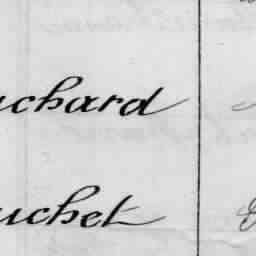 uchard
uchet